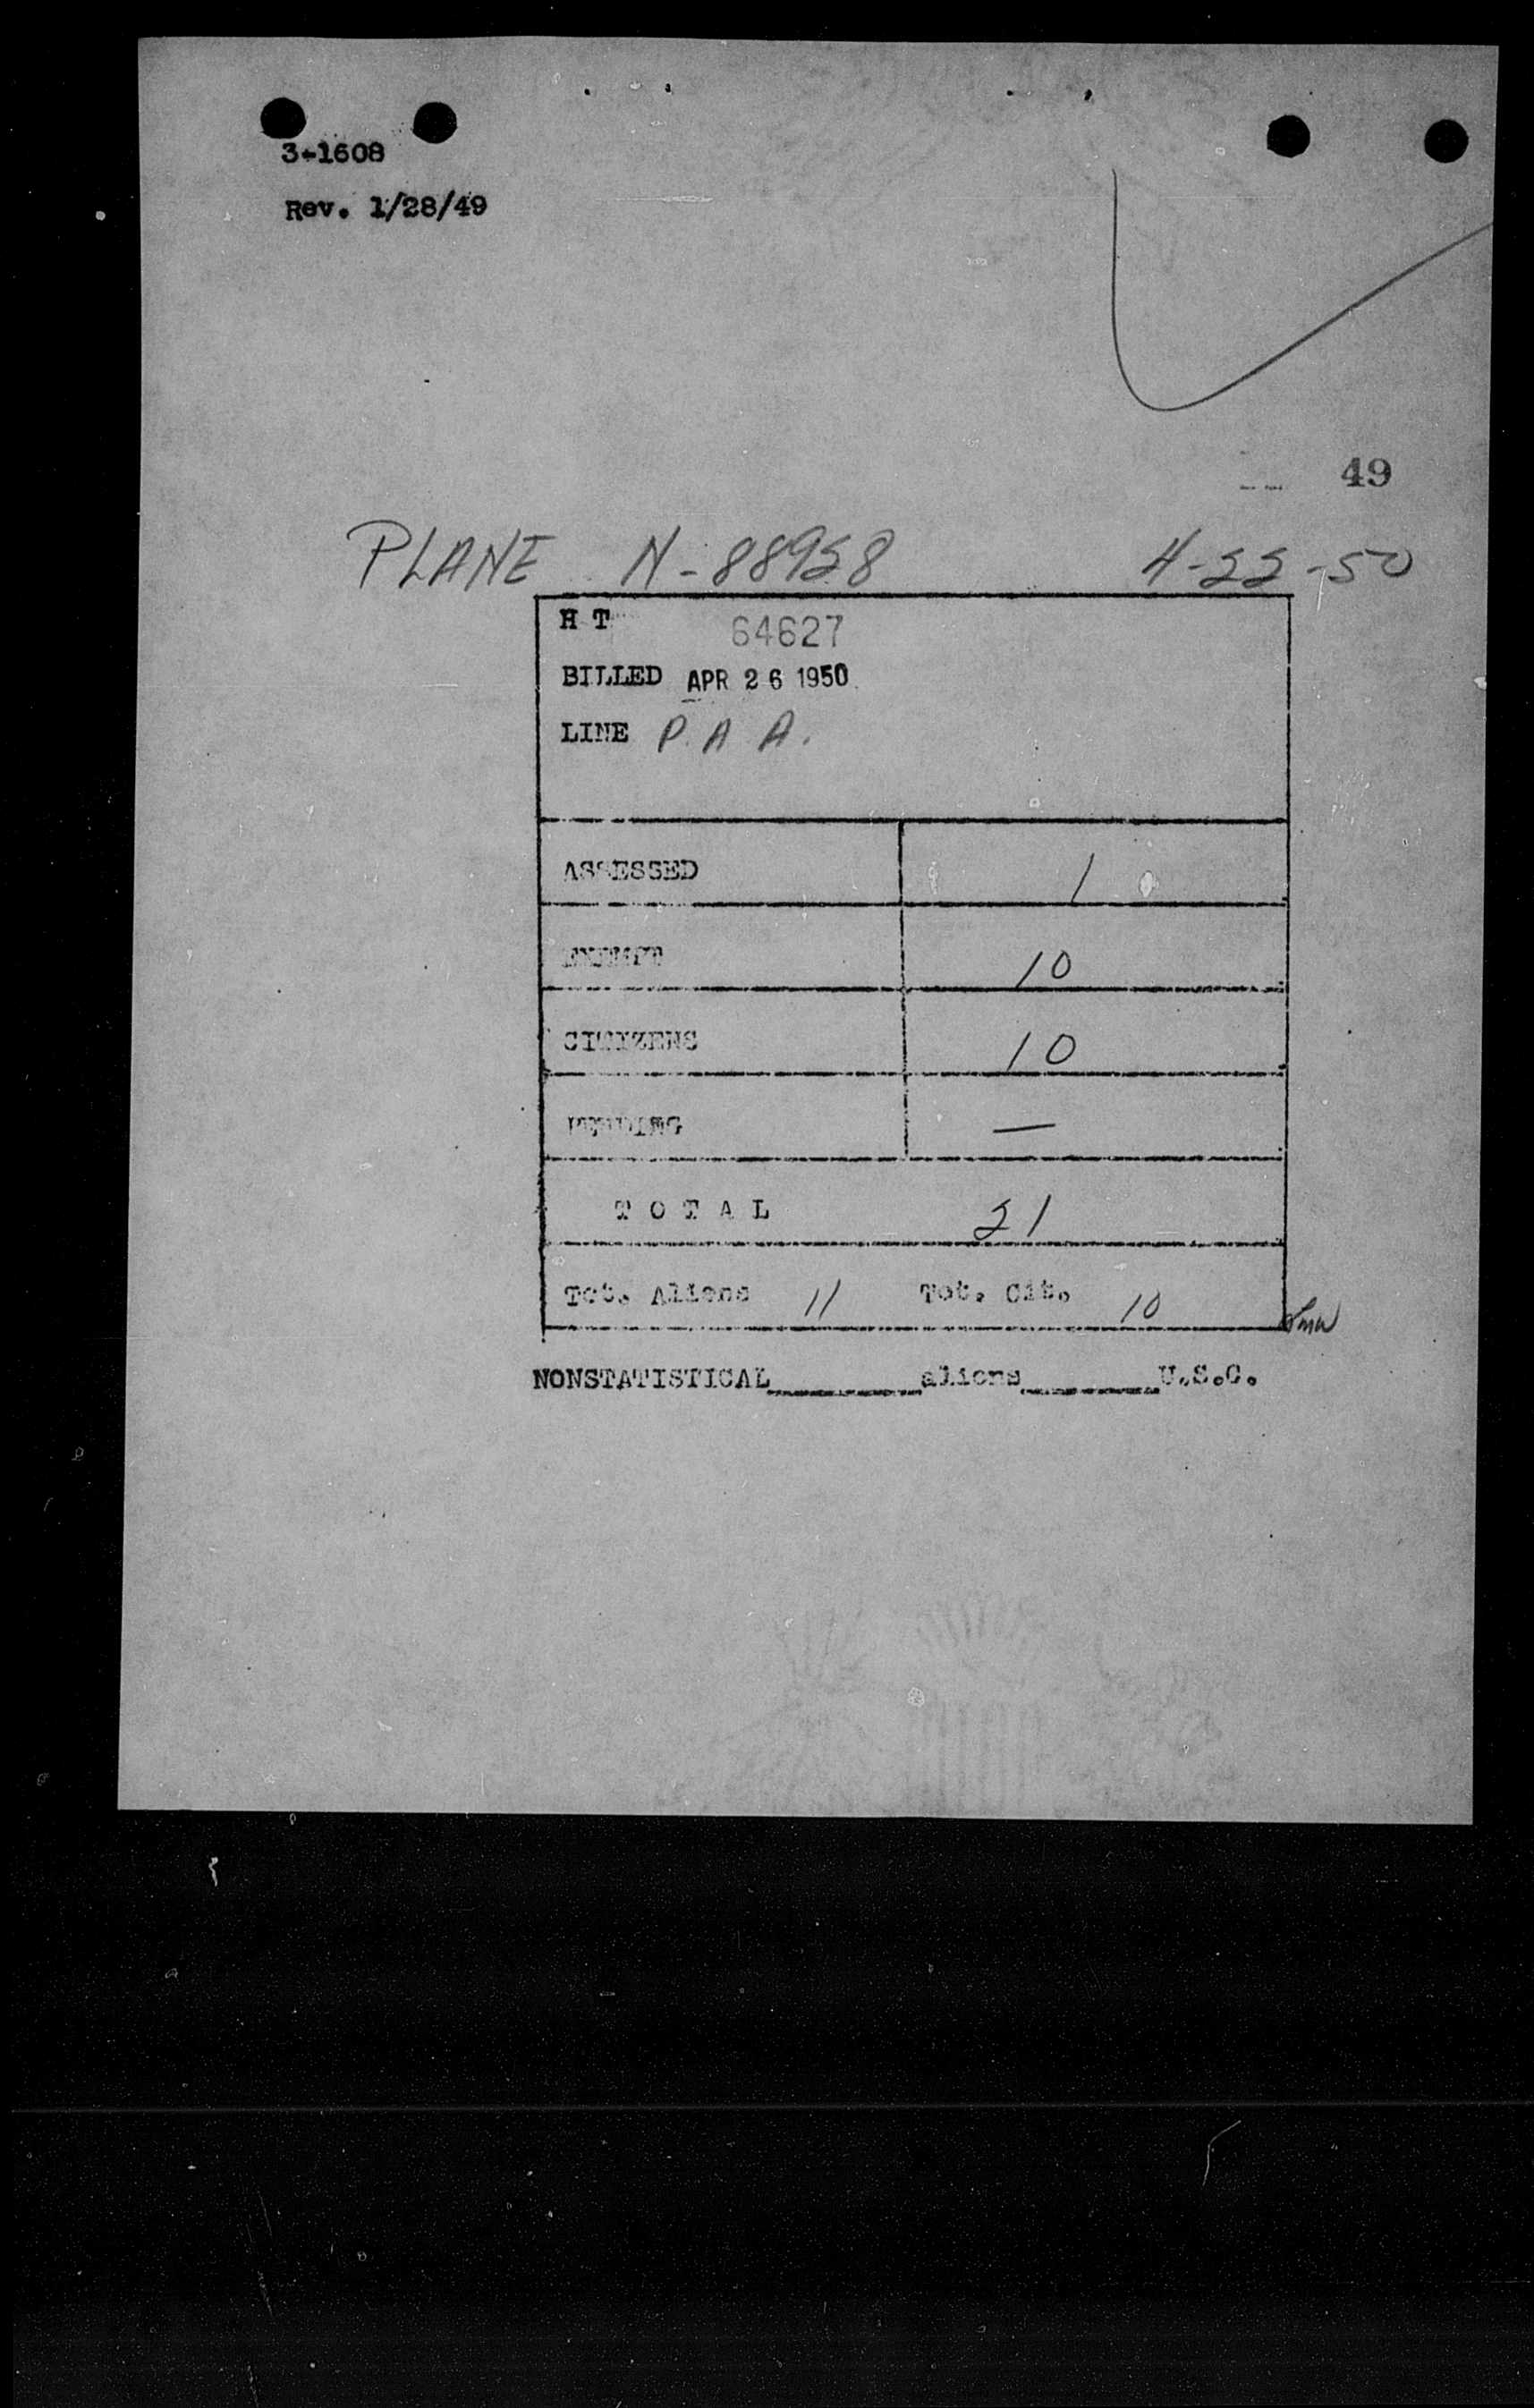 3-1608
Rev. 1/28/49
49
PLANE N-88958 4-22-50
H T 64627
BILLED APR 26 1950
LINE P.A A.
ASSESSED 1
EXEMPT 10
CITIZENS 10
PENDING —
T O T A L 21
Tot. Aliens 11 Tot. Cit. 10
NONSTATISTICAL________aliens________U.S.C.